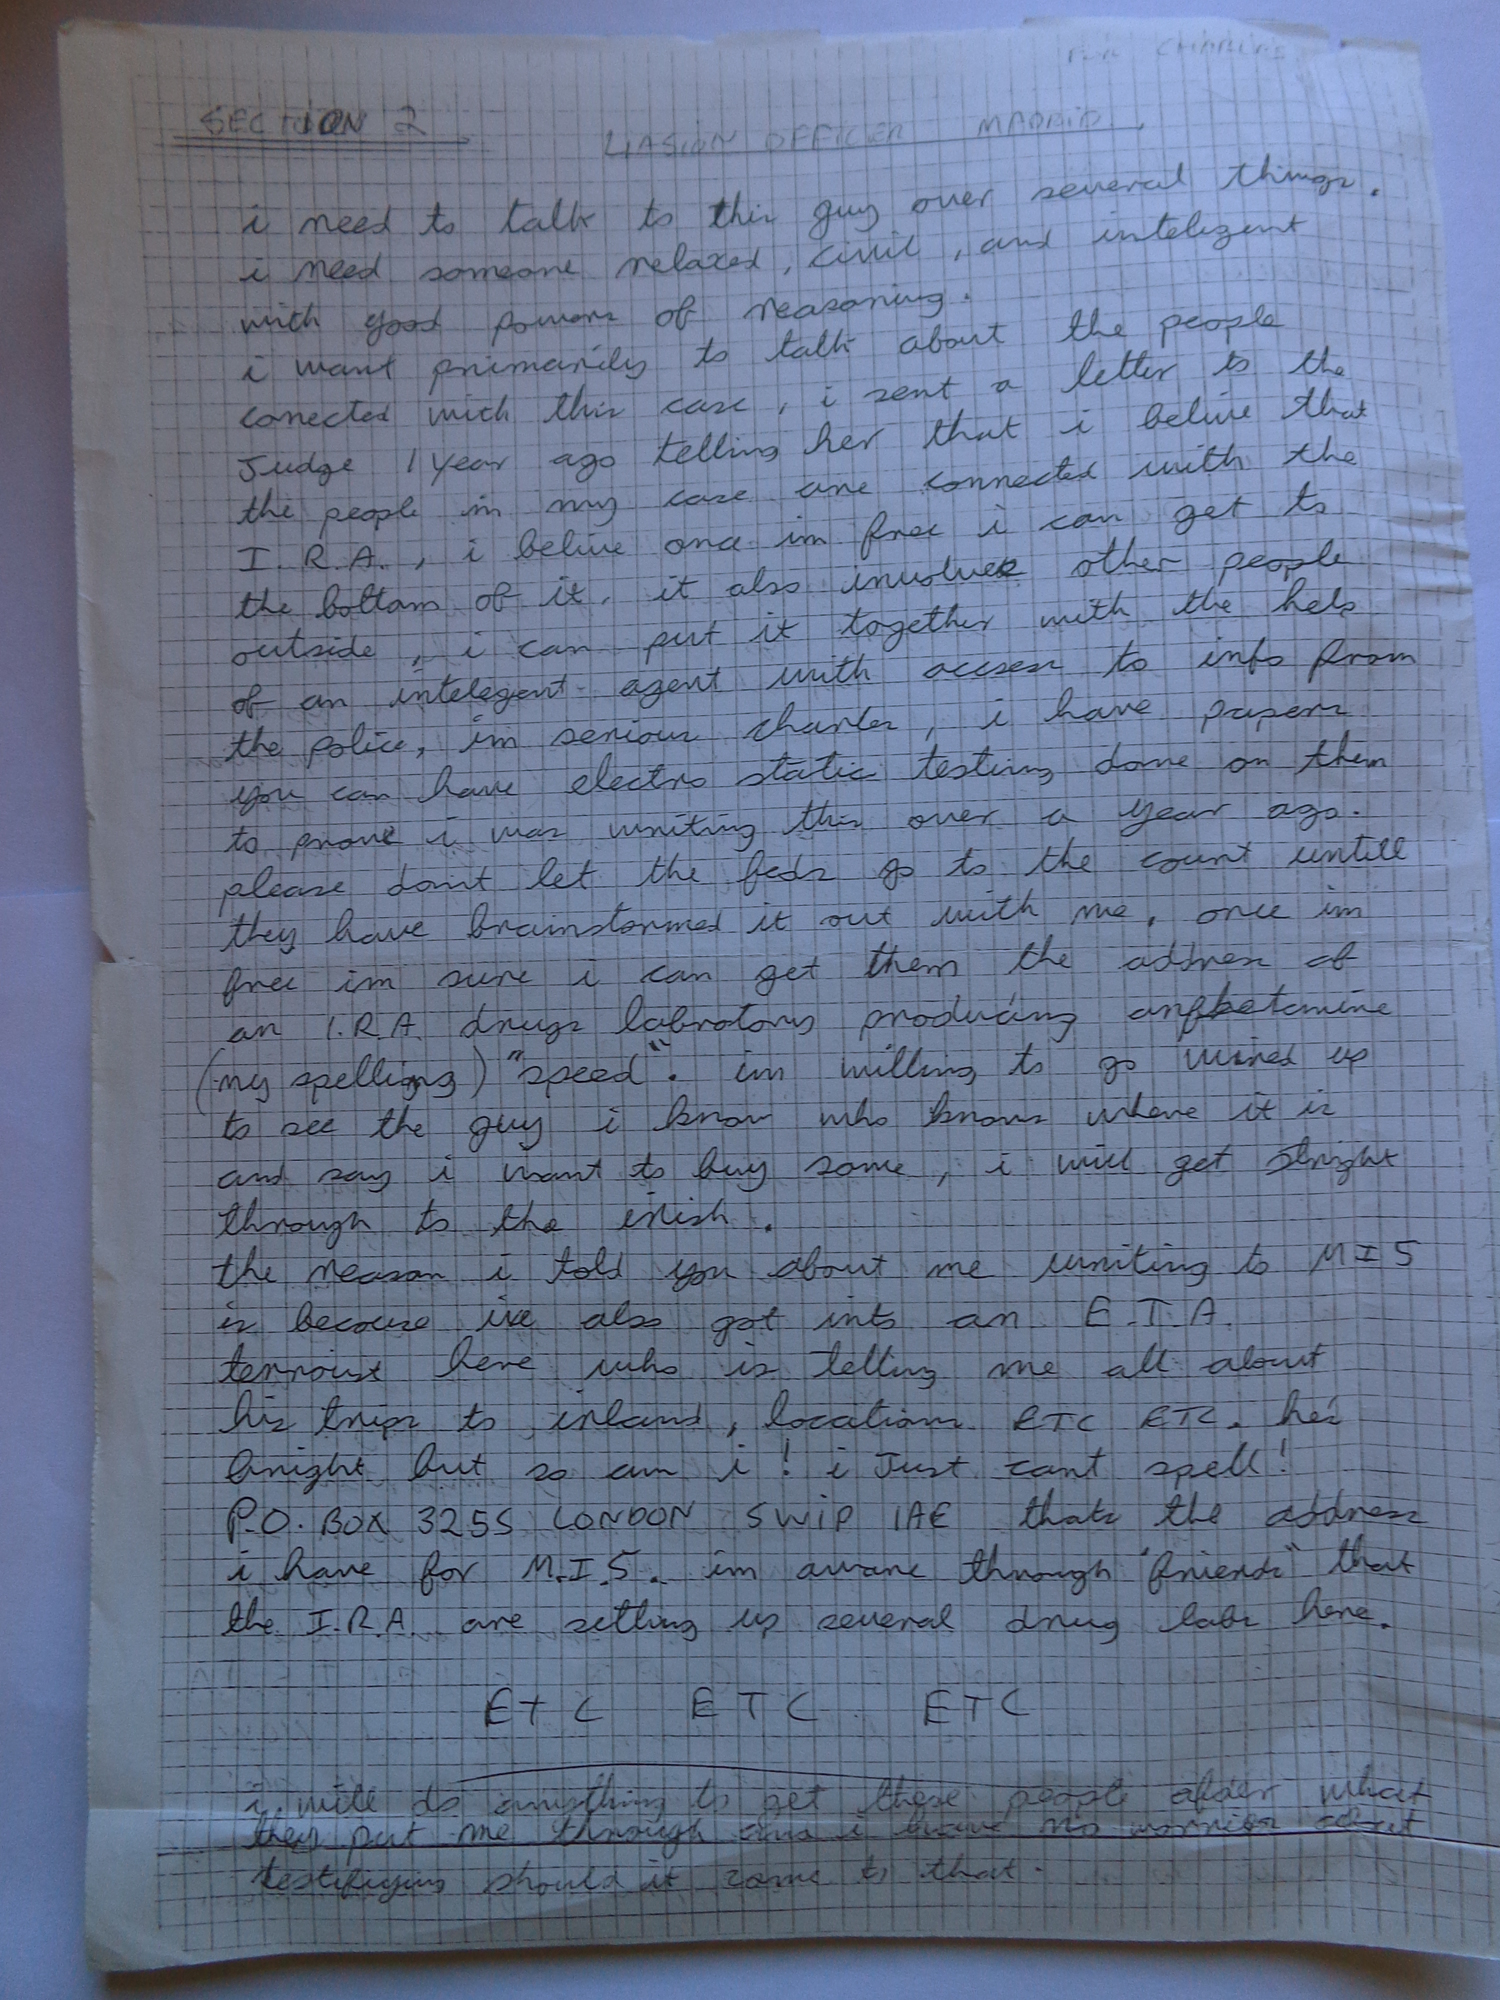 FOR CHARLES
SECTION 2
LIASION OFFICER MADRID.
i need to talk to this guy over several things.
i need someone relaxed, civil, and inteligent
with good powers of reasoning.
i want primarily to talk about the people
conected with this case, i sent a letter to the
Judge 1 year ago telling her that i belive that
the people in my case are connected with the
I.R.A., i belive once im free i can get to
the bottom of it. it also involves other people
outside, i can put it together with the help
of an intelegent agent with access to info from
the police, im serious charles, i have papers
you can have electro static testing done on them
to prove i was writing this over a year ago.
please dont let the feds go to the court untill
they have brainstormed it out with me, once im
free im sure i can get them the address of
an I.R.A. drugs labrotory producing anphetamine
(my spelling) "speed". im willing to go wired up
to see the guy i know who knows where it is
and say i want to buy some, i will get stright
through to the irish.
the reason i told you about me writing to MI5
is becouse ive also got into an E.T.A.
terroist here who is telling me all about
his trips to irland, locations ETC ETC. hes
bright but so am i! i Just cant spell!
P.O. BOX 3255 LONDON SW1P 1AE thats the address
i have for M.I.5. im aware through "friends" that
the I.R.A. are setting up several drug labs here.
ETC ETC ETC
i will do anything to get these people after what
they put me through and i have no worries about
testifying should it come to that.